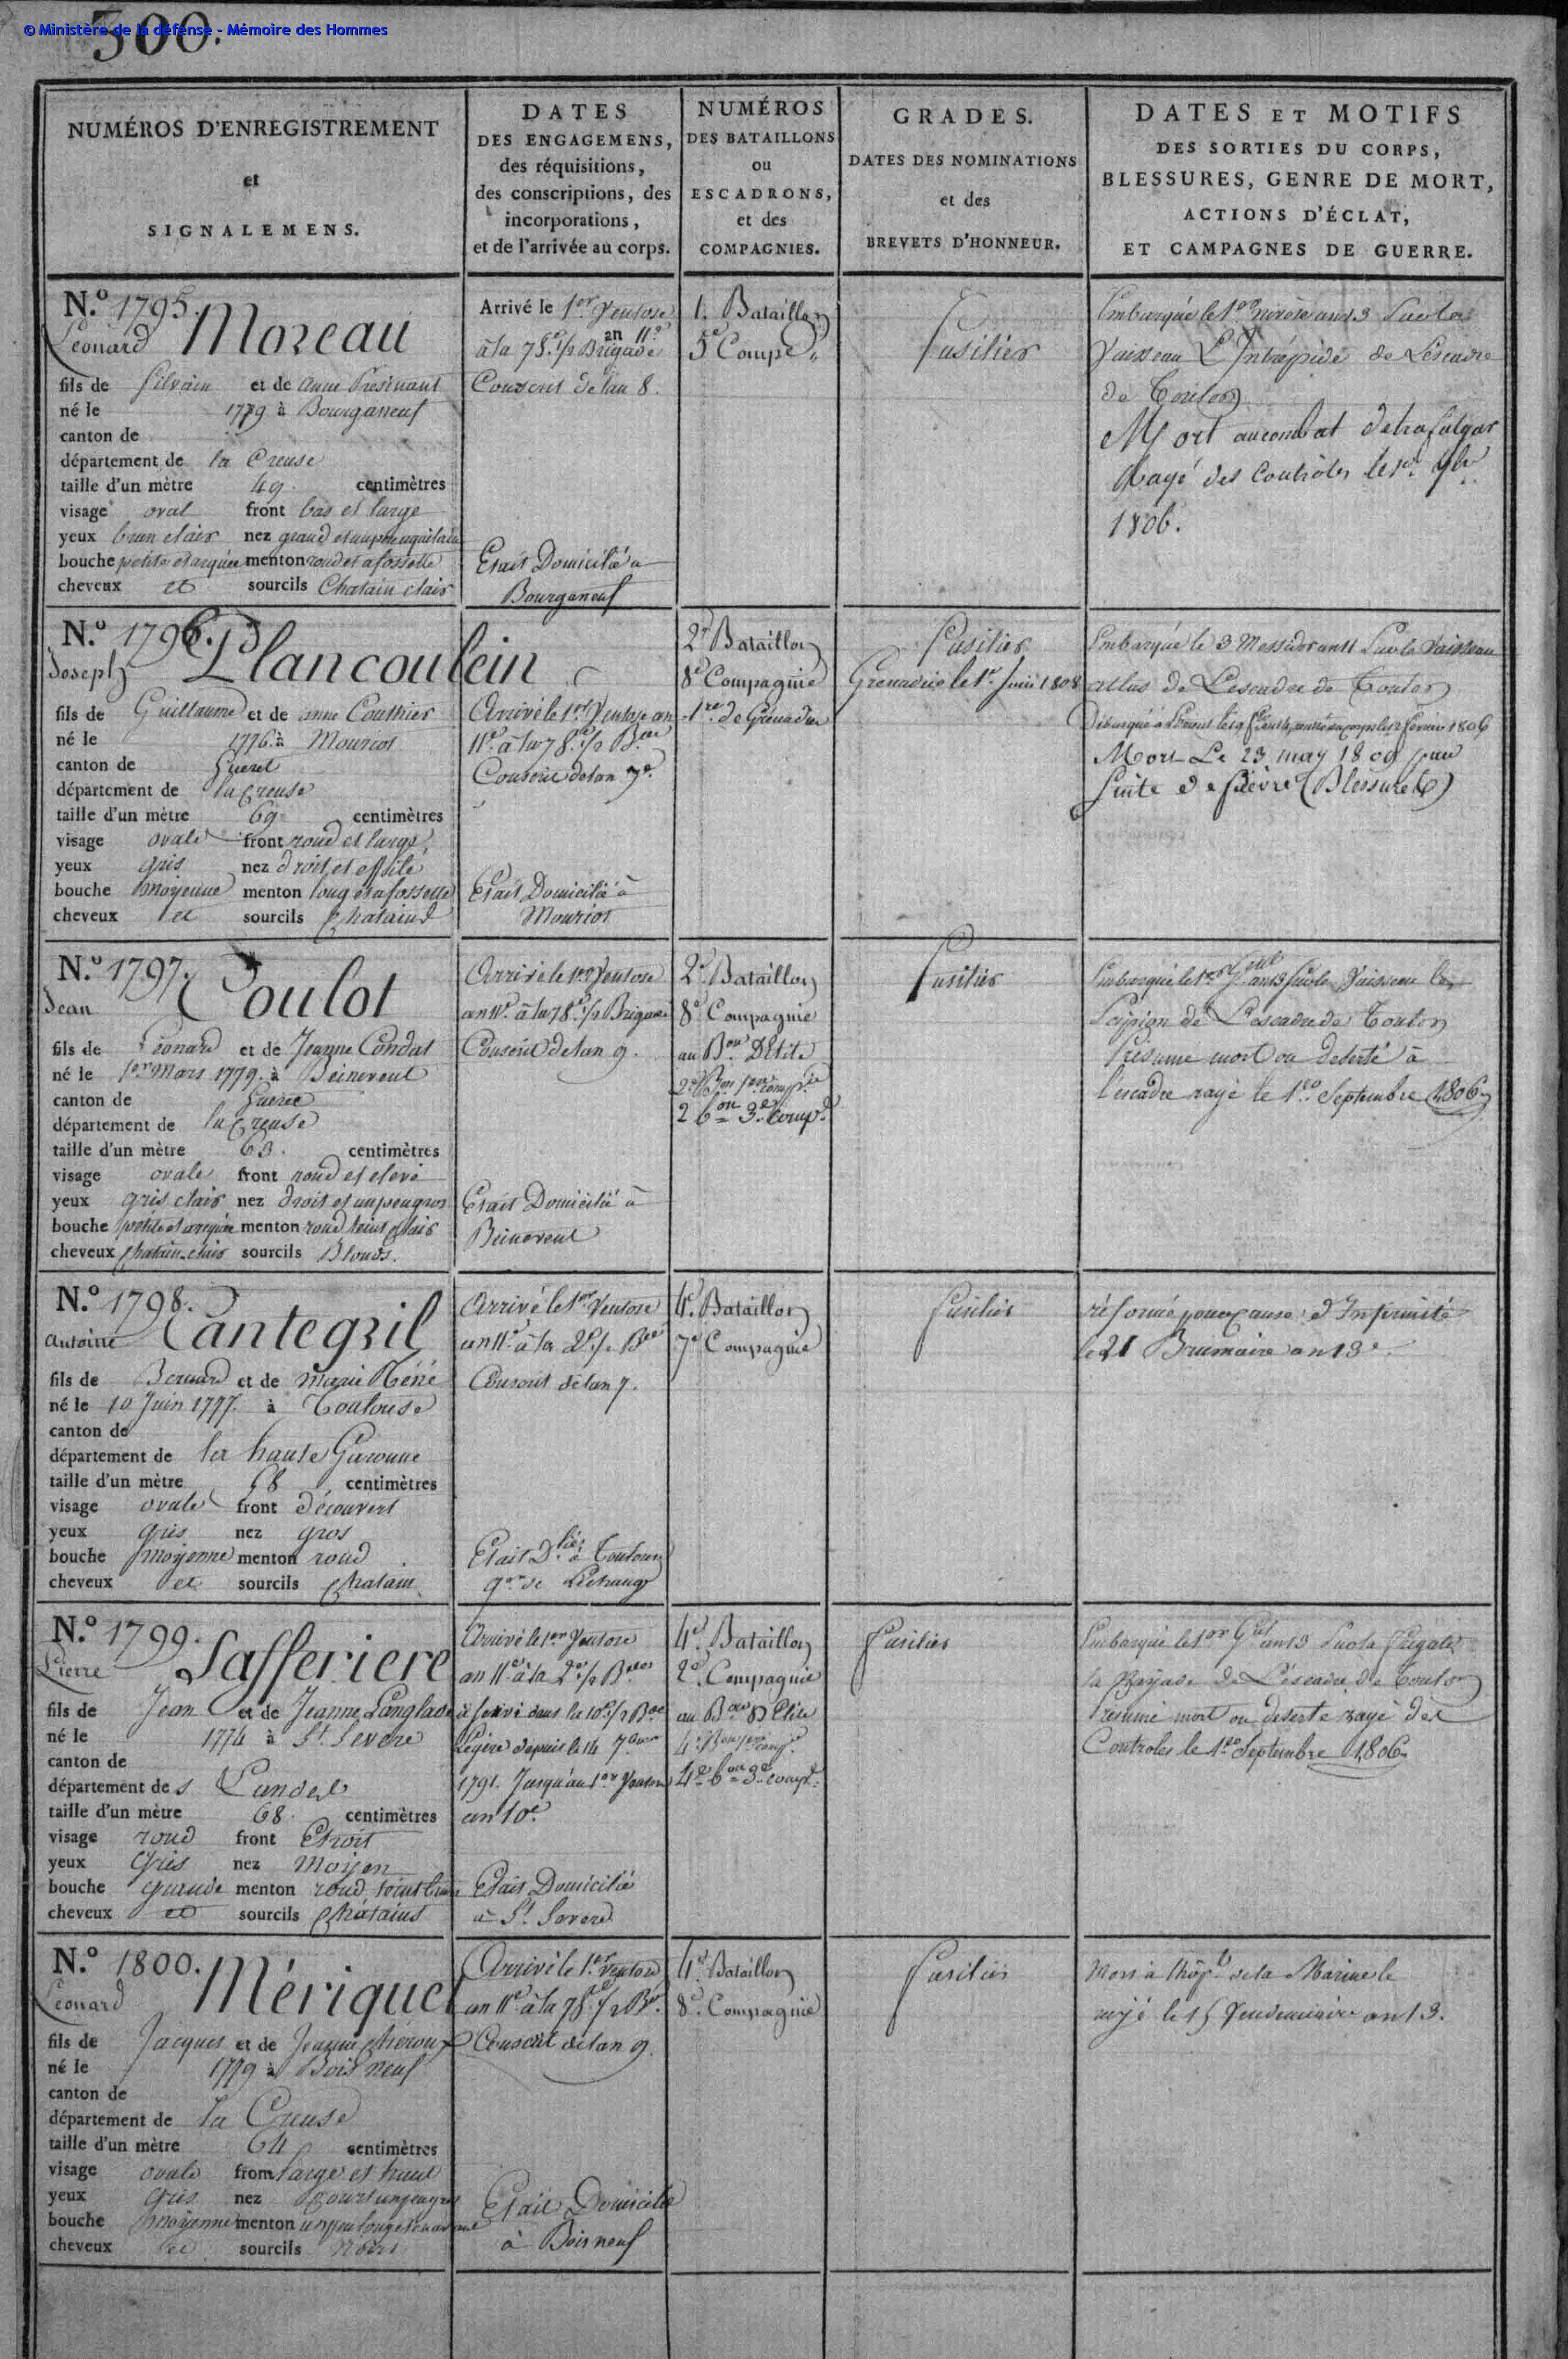 © Ministère de la défense - Mémoire des Hommes
300.
NUMÉROS D'ENREGISTREMENT
et
SIGNALEMENS.
DATES
DES ENGAGEMENS,
des réquisitions,
des conscriptions, des
incorporations,
et de l'arrivée au corps.
NUMÉROS
DES BATAILLONS
ou
ESCADRONS,
et des
COMPAGNIES.
GRADES.
DATES DES NOMINATIONS
et des
BREVETS D'HONNEUR.
DATES ET MOTIFS
DES SORTIES DU CORPS,
BLESSURES, GENRE DE MORT,
ACTIONS D'ÉCLAT,
ET CAMPAGNES DE GUERRE.
N.º 1795.
Léonard Moreau
fils de Silvain et de anne
né le 1779 à Bourganeuf
canton de
département de la Creuse
taille d'un mètre 49 centimètres
visage oval front bas et large
yeux brun clair nez grand et un peu aquilain
bouche petite et arquée menton rond et a fossette
cheveux et sourcils Chatain clair
Arrivé le 1er Ventose
an 11e
à la 78e 1/2 Brigade
Conscrit de lan 8.
Etait Domicilié a
Bourganeuf
1. Bataillon
5e Compe
Fusilier
Embarqué le 1er nivose an 13 Sur le
Vaisseau L'Intrépide de Lescadre
de Toulon
Mort au combat de trafalgar
Rayé des Controles le 1er 9bre
1806.
N.º 1796.
Joseph Plancoulein
fils de Guillaume et de anne Couthier
né le 1776 à Mouriot
canton de Gueret
département de la Creuse
taille d'un mètre 69 centimètres
visage ovale front rond et large
yeux gris nez droit et effilé
bouche moyenne menton long et a fossette
cheveux et sourcils Chataind
Arrivé le 1er Ventose an
11e à la 78e 1/2 Bde
Conscrit de lan 7e
Etait Domicilié à
Mouriot
2e Bataillon
8e Compagnie
1re de Grenadier
Fusilier
Grenadier le 1er Juin 1808
Embarqué le 3 Messidor an 11 Sur le Vaisseau
atlas de Lescadre de Toulon
Débarqué à rentré au corps le 12 février 1806
Mort Le 23 may 1809 par
Suite de fièvre (Blessure)
N.º 1797.
Jean Coulot
fils de Léonard et de Jeanne Condat
né le 1er Mars 1779. à Beinevent
canton de Gueret
département de la Creuse
taille d'un mètre 63. centimètres
visage ovale front rond et elevé
yeux gris clair nez droit et un peu gros
bouche petite et arquée menton rond teint clair
cheveux Chatain clair sourcils Blonds.
Arrivé le 1er Ventose
an 11e à la 78e 1/2 Brigade
Conscrit de lan 9.
Etait Domicilié à
Beinevent
2e Bataillon
8e Compagnie
au Bon D'Elite
2e Bon 1re Compie
2 bon 3e Comp.
Fusilier
Embarqué le 1er Gal an 13 Sur le Vaisseau le
Scipion de Lescadre de Toulon
Présumé mort ou deserté à
l'escadre rayé le 1er Septembre 1806
N.º 1798.
Antoine Cantegril
fils de Bernard et de Marie Réné
né le 10 Juin 1777. à Toulouse
canton de
département de la haute Garonne
taille d'un mètre 68 centimètres
visage ovale front découvert
yeux gris nez gros
bouche moyenne menton rond
cheveux et sourcils Chatain
Arrivé le 1er Ventose
an 11e à la 2e 1/2 Bde
Conscrit de lan 7.
Etait Dlié à Toulouse
4e. Bataillon
7e Compagnie
Fusilier
réformé pour Cause d'Infirmité
le 21 Brumaire an 13e.
N.º 1799.
Pierre Lafferiere
fils de Jean et de Jeanne Langlade
né le 1774 à St. Severe
canton de
département des Landes
taille d'un mètre 68. centimètres
visage rond front Etroit
yeux Gris nez Moyen
bouche grande menton rond, teint brun
cheveux et sourcils Chatains
Arrivé le 1er Ventose
an 11e à la 2e 1/2 Bde
à Servi dans la 10e 1/2 Bde
Légère depuis le 14 7bre
1791. Jusqu'au 1er Ventose
an 10e.
Etait Domicilié
à St. Severe
4e. Bataillon
2e. Compagnie
au Bon D'Elite
4e Bon 1re Comp.
4e bon 3e comp.
Fusilier
Embarqué le 1er Gal an 13 Sur la Frégate
de L'escadre de Toulon
Présumé mort ou deserté rayé des
Controles le 1er Septembre 1806
N.º 1800.
Léonard Mériguet
fils de Jacques et de Jeanne
né le 1779 à Bois neuf
canton de
département de la Creuse
taille d'un mètre 64 centimètres
visage ovale front large et haut
yeux gris nez court un peu gros
bouche moyenne menton un peu long
cheveux et sourcils Noirs
Arrivé le 1er Ventose
an 11e à la 78e 1/2 Bde.
Conscrit de lan 9.
Etait Domicilié
à Bois neuf
4e. Bataillon
8e. Compagnie
Fusilier
Mort à lhôpal de la Marine le
rayé le 15 Vendemiaire an 13.